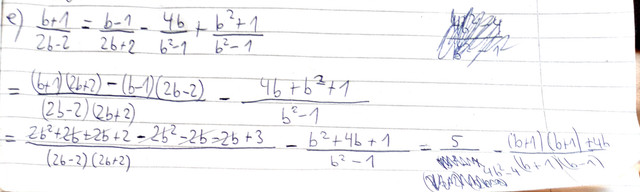 e) \frac{b+1}{2b-2} = \frac{b-1}{2b+2} - \frac{4b}{b^2-1} + \frac{b^2+1}{b^2-1}
= \frac{(b+1)(2b+2)-(b-1)(2b-2)}{(2b-2)(2b+2)} - \frac{4b+b^2+1}{b^2-1}
= \frac{2b^2+2b+2b+2-2b^2-2b-2b+3}{(2b-2)(2b+2)} - \frac{b^2+4b+1}{b^2-1} = \frac{5}{4b^2-4} - \frac{(b+1)(b+1)+4b}{(b+1)(b-1)}